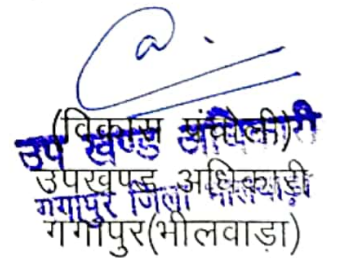 (विकास पंचोली)
उप खण्ड अधिकारी
उपखण्ड अधिकारी
गंगापुर जिला भीलवाड़ा
गंगापुर(भीलवाड़ा)